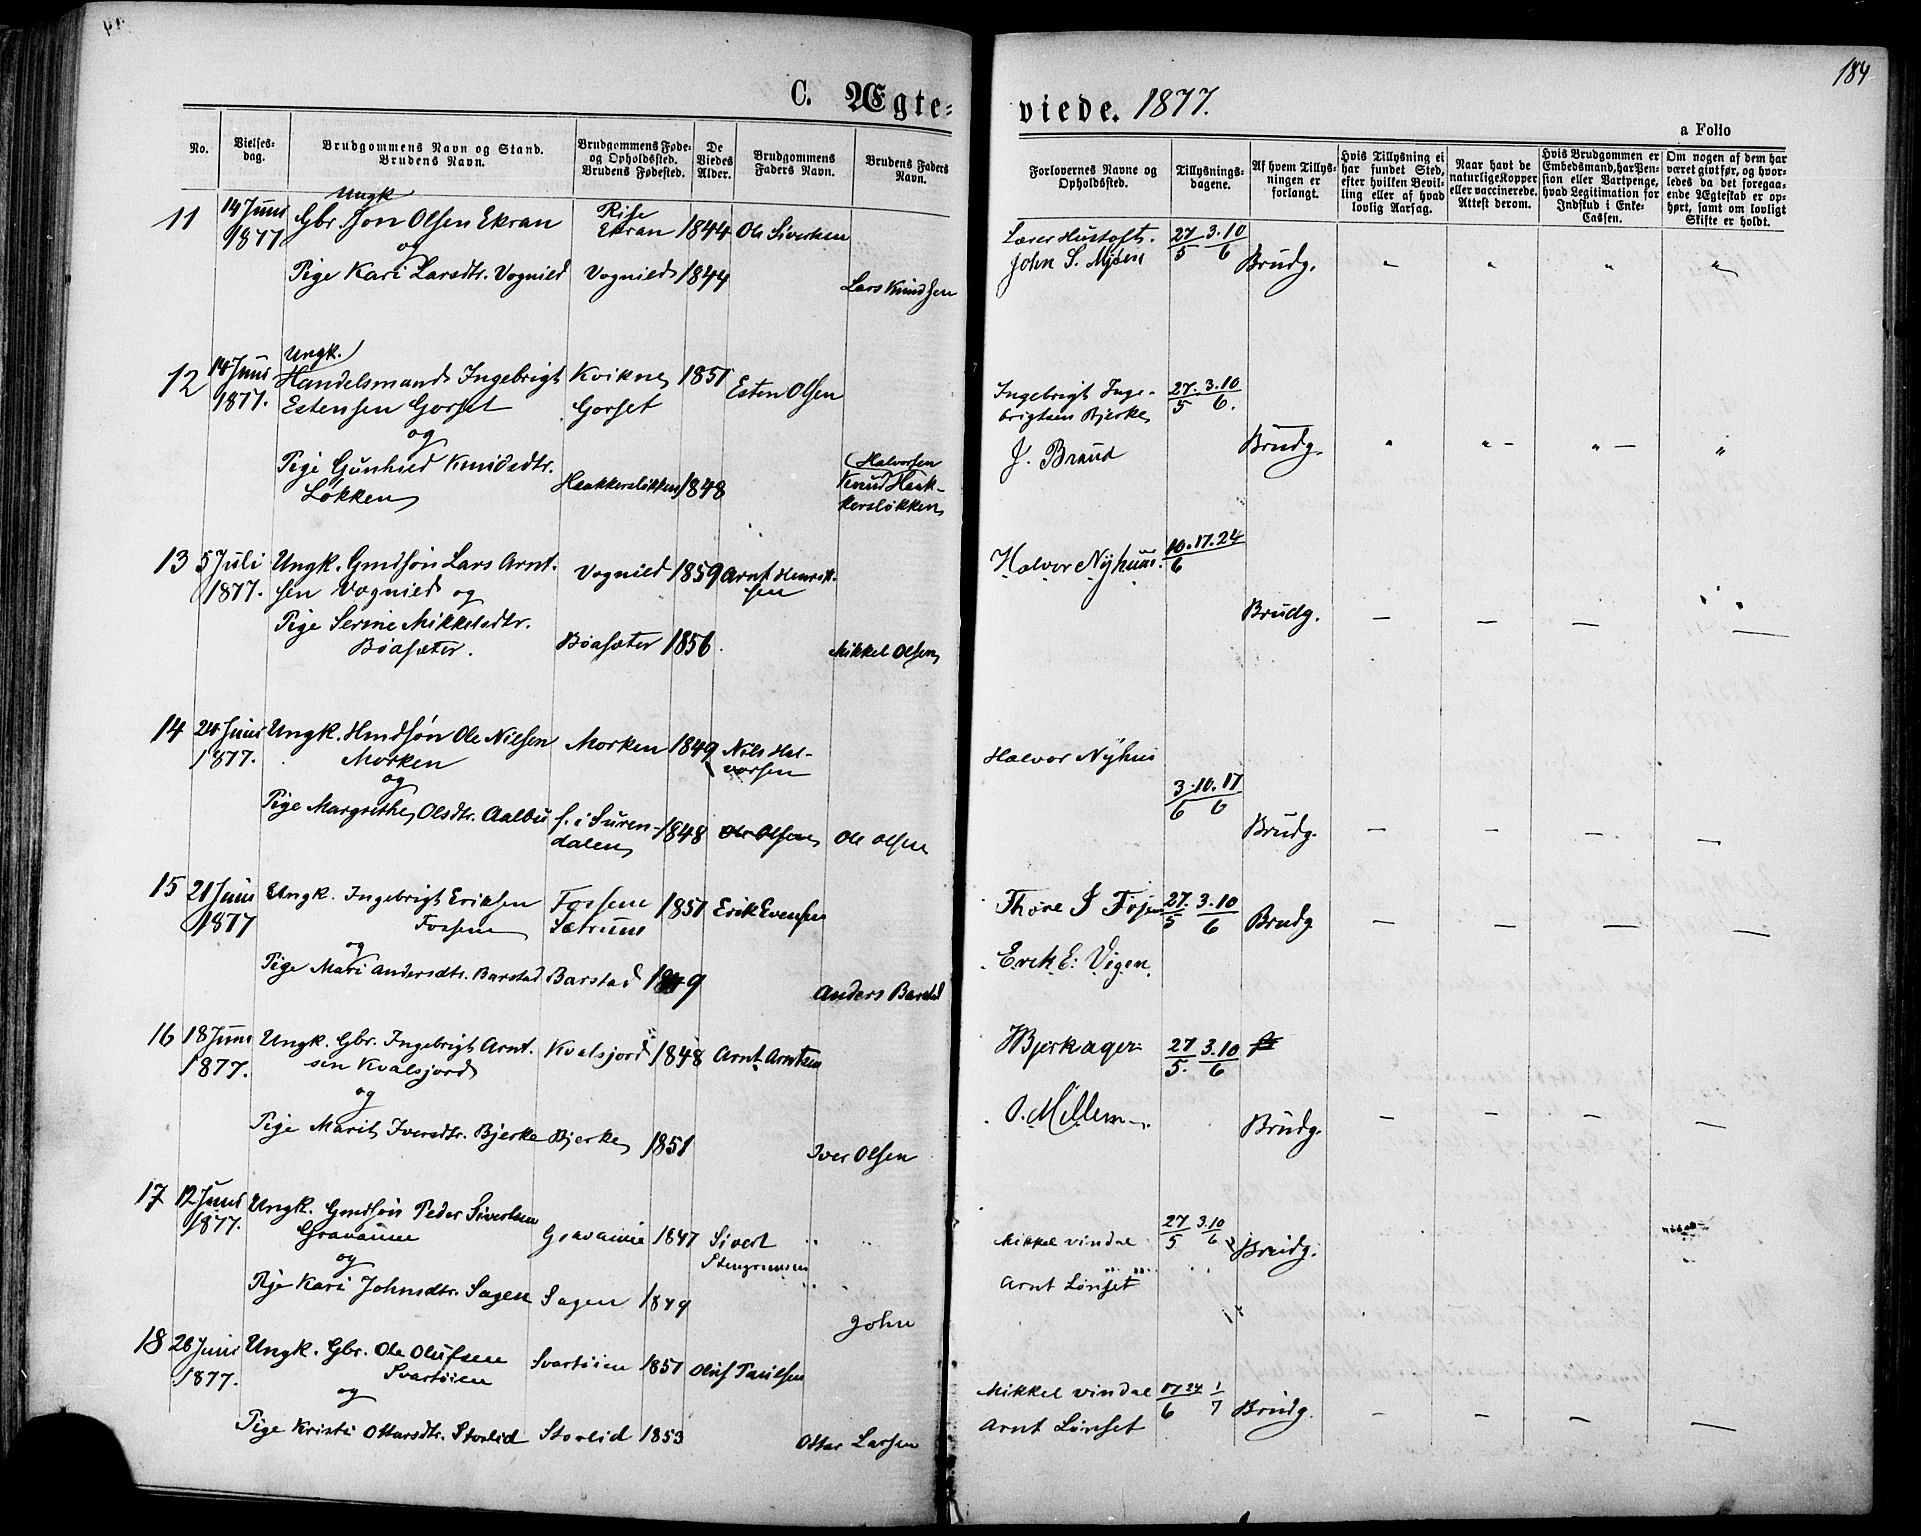 184
C. Ægte-
viede. 1877.
a Folio
No.
Vielses-
dag.
Brudgommens Navn og Stand.
Brudens Navn.
Brudgommens Føde-
og Opholdssted.
Brudens Fødested.
De
Viedes
Alder.
Brudgommens
Faders Navn.
Brudens Faders
Navn.
Forlovernes Navne og
Opholdssted.
Tillysnings-
dagene.
Af hvem Tillys-
ningen er
forlangt.
Hvis Tillysning ei
har fundet Sted,
efter hvilken Bevil-
ling eller af hvad
lovlig Aarsag.
Naar havt de
naturlige Kopper
eller vaccinerede.
Attest derom.
Hvis Brudgommen er
Embedsmand, har Pen-
sion eller Vartpenge,
hvad Legitimation for
Indskud i Enke-
Cassen.
Om nogen af dem har
været givt før, og hvor-
ledes da det foregaa-
ende Ægteskab er op-
hørt, samt om lovligt
Skifte er holdt.
11
14 Juni
1877
Ungk
Gbr. Jon Olsen Ekran
og
Pige Kari Larsdtr. Vognild
Rise
Ekran
Vognild
1844
1844
Ole Sivertsen
Lars Knudsen
Lærer Hustoft.
John S. Mjøen
27/5 3.10/6
Brudg.
12
14 Juni
1877.
Ungk.
Handelsmand Ingebrigt
Estensen Gorset
og
Pige Gunhild Knudsdtr.
Løkken
Kvikne
Gorset
Haakkersløkken
1851
1848
Esten Olsen
Halvorsen
Knud Haak-
kersløkken
Ingebrigt Inge-
brigtsen Bjerke
J. Braud
27/5 3.10/6.
Brudg.
13
5 Juli
1877.
Ungk. Gmdsøn Lars Arnt-
sen Vognild og
Pige Serine Mikkelsdtr.
Böasæter.
Vognild
Böasæter
1859
1856
Arnt Henrik-
sen
Mikkel Olsen
Halvor Nyhuus.
10.17.24/6
Brudg.
14
24 Juni
1877.
Ungk. Hmdsøn Ole Nilsen
Morken
og
Pige Margrethe Olsdtr. Aalbu
Morken
f. i Suren-
dalen
1849
1848
Nils Hal-
vorsen
Ole Olsen
Ole Olsen
Halvor Nyhus
3.10.17/6 6
Brudg.
15
21 Juni
1877
Ungk. Ingebrigt Eriksen
Fossem
og
Pige Mari Andersdtr. Barstad
Fossem
Sætrum
Barstad
1851
1849
Erik Evensen
Anders Barstad
Thore I
Erik E. Vigen
27/5 3.10/6
Brudg
16
18 Juni
1877.
Ungk. Gbr. Ingebrigt Arnt-
sen Kvalsjord
og
Pige Marit Iversdtr. Bjerke
Kvalsjord
Bjerke
1848
1851
Arnt Arntsen
Iver Olsen
Bjerkager
O. Mellem
27/5. 3.10/6
Brudg.
17
12 Juni
1877.
Ungk. Gmdsøn Peder Sivertsen
Gravaune
og
Pige Kari Johnsdtr. Sagen
Gravaune
Sagen
1847
1849
Sivert
John
Mikkel Vindal
Arnt Lønset
27/5 3.10/6
Brudg.
18
28 Juni
1877.
Ungk. Gbr. Ole Olufsen
Svartöien
og
Pige Kristi Ottarsdtr. Storlid
Svartöien
Storlid
1851
1853
Oluf Paulsen
Ottar Larsen
Mikkel Vindal
Arnt Lønset
17 24/6 1/7
Brudg.